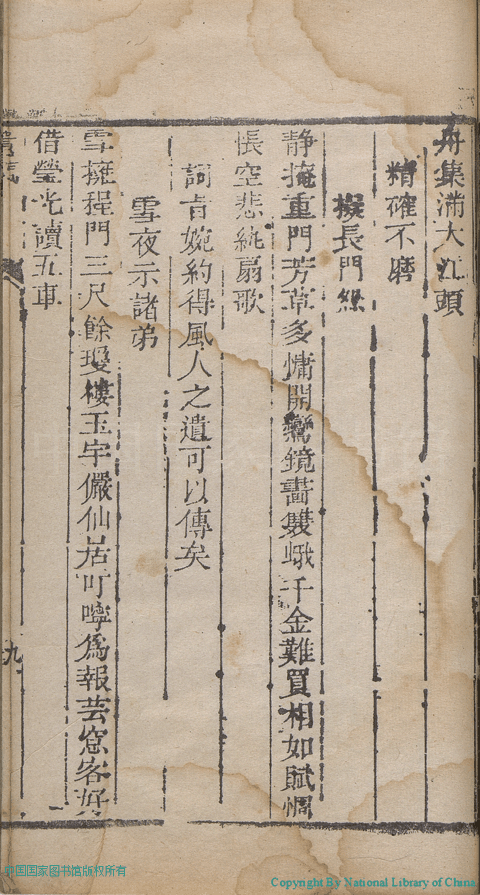 舟集滿大江頭
精確不磨
擬長門怨
靜掩重門芳草多慵開鸞鏡畵雙蛾千金難買相如賦惆
悵空悲紈扇歌
詞旨婉約得風人之遺可以傳矣
雪夜示諸弟
雪擁程門三尺餘瓊樓玉宇儼仙居叮嚀爲報芸窓客好
借瑩光讀五車
九
中国国家图书馆版权所有
Copyright By National Library of China